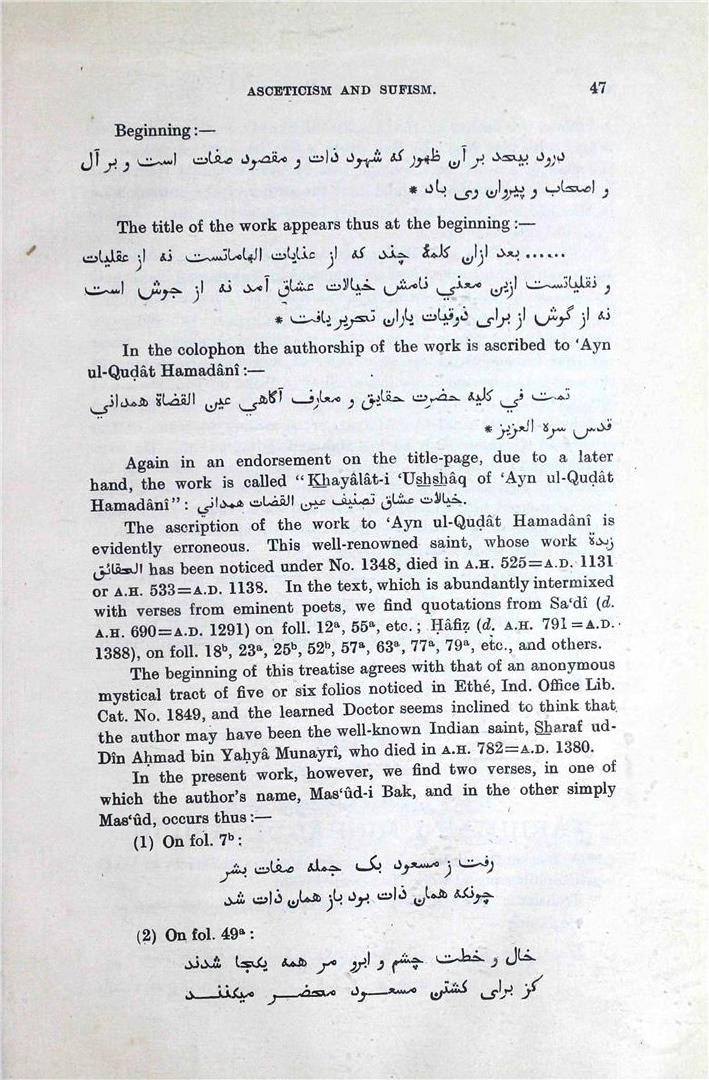 ASCETICISM AND SUFISM. 47
Beginning:—
درود بیحد بر آن ظهور که شهود ذات و مقصود صفات است و بر آل
و اصحاب و پیروان وی باد *
The title of the work appears thus at the beginning:—
...... بعد ازان کلمۀ چند که از عنایات الهاماتست نه از عقلیات
و نقلیاتست ازین معني نامش خیالات عشاق آمد نه از جوش است
نه از گوش از برای ذوقیات یاران تحریر یافت *
In the colophon the authorship of the work is ascribed to ‘Ayn
ul-Quḍât Hamadânî:—
تمت في کلیه حضرت حقایق و معارف آگاهي عین القضاة همداني
قدس سره العزیز *
Again in an endorsement on the title-page, due to a later
hand, the work is called “Khayâlât-i ‘Ushshâq of ‘Ayn ul-Quḍât
Hamadânî”: خیالات عشاق تصنیف عین القضات همداني.
The ascription of the work to ‘Ayn ul-Quḍât Hamadânî is
evidently erroneous. This well-renowned saint, whose work زبدة
الحقائق has been noticed under No. 1348, died in A.H. 525=A.D. 1131
or A.H. 533=A.D. 1138. In the text, which is abundantly intermixed
with verses from eminent poets, we find quotations from Sa‘dî (d.
A.H. 690=A.D. 1291) on foll. 12ᵃ, 55ᵃ, etc.; Ḥâfiẓ (d. A.H. 791=A.D.
1388), on foll. 18ᵇ, 23ᵃ, 25ᵇ, 52ᵇ, 57ᵃ, 63ᵃ, 77ᵃ, 79ᵃ, etc., and others.
The beginning of this treatise agrees with that of an anonymous
mystical tract of five or six folios noticed in Ethé, Ind. Office Lib.
Cat. No. 1849, and the learned Doctor seems inclined to think that
the author may have been the well-known Indian saint, Sharaf ud-
Dîn Aḥmad bin Yaḥyâ Munayrî, who died in A.H. 782=A.D. 1380.
In the present work, however, we find two verses, in one of
which the author’s name, Mas‘ûd-i Bak, and in the other simply
Mas‘ûd, occurs thus:—
(1) On fol. 7ᵇ:
رفت ز مسعود بک جمله صفات بشر
چونکه همان ذات بود باز همان ذات شد
(2) On fol. 49ᵃ:
خال و خطت چشم و ابرو مر همه یکجا شدند
کز برای کشتن مسعود محضر میکنند